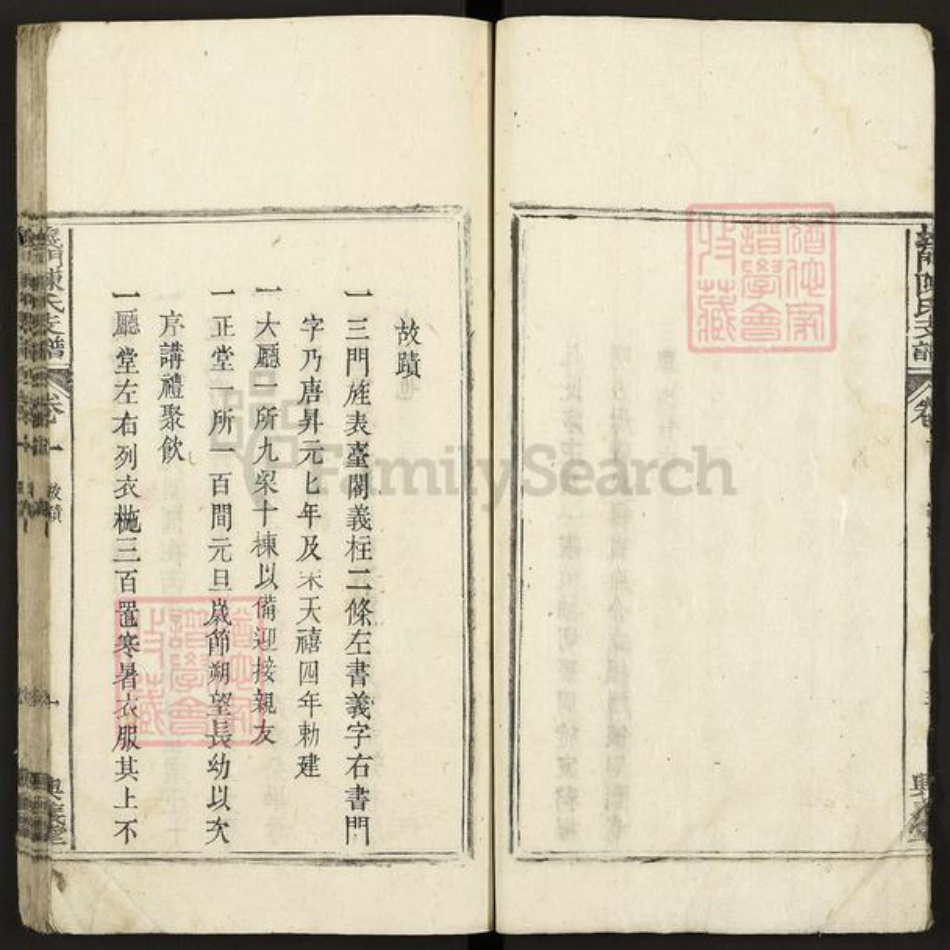 故蹟
一三門旌表臺閣義柱二條左書義字右書門
字乃唐昇元七年及宋天禧四年勅建
一大廳一所九梁十棟以備迎接親友
一正堂一所一百間元旦歲節朔望長幼以次
序講禮聚飲
一廳堂左右列衣椸三百置寒暑衣服其上不
義門陳氏支譜
卷一
故蹟
一
FamilySearch